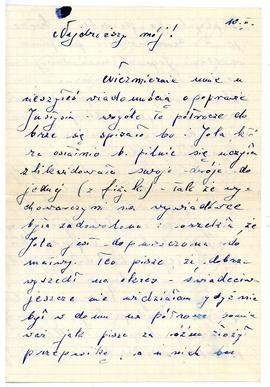 10.II.
Najdroższy mój!
Niezmiernie mnie u
cieszyłeś wiadomością o poprawie
Justysia - wogóle to półrocze do
brze się spisało bo i Jola któ
ra ostatnio b. pilnie się uczyła
zlikwidowała swoje dwóje do
jednej (z fizyki) - tak że wy
chowawczyni na wywiadówce
była zadowolona i orzekła że
Jola jest dopuszczona do
matury. Teo pisze, że dobrze
wyszedł na okres - świadectwa
jeszcze nie widziałam gdyż nie
był w domu na półrocze ponie
waż jak pisze za późno złożył
przepustkę, a u nich bez